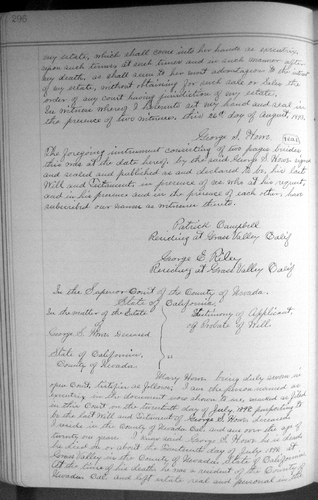 296
my estate, which shall come into her hands as executrix
upon such terms, at such times and in such manner after
my death, as shall seem to her most advantageous to the interest
of my estate, without obtaining for such sale or sales the
order of any court having jurisdiction of my estate.
In witness whereof I hereunto set my hand and seal in
the presence of two witnesses, this 26th day of August,
George S. Howe (seal)
The foregoing instrument consisting of two pages besides
this one was at the date hereof, by the said George S. Howe signed
and sealed and published as and declared to be, his last
Will and Testament, in presence of us who at his request,
and in his presence and in the presence of each other, have
subscribed our names as witnesses thereto.
Patrick Campbell
Residing at Grass Valley Calif
George E. Riley
Residing at Grass Valley Calif
In the Superior Court of the County of Nevada,
State of California,
In the matter of the Estate of Testimony of Applicant
of Probate of Will.
George S. Howe Deceased
State of California,
County of Nevada. ss
Mary Howe being duly sworn in
open Court, testifies as follows: I am the person named as
executrix in the document now shown to me, marked as filed
in this Court on the day of July, 1892 purporting to
be the last Will and Testament of George S. Howe, deceased
I reside in the County of Nevada Cal. and am over the age of
twenty one years. I knew said George S. Howe he is dead,
he died on or about the day of July 1892 at
Grass Valley in the County of Nevada, State of California
At the time of his death, he was a resident of the County of
Nevada Cal. and left estate real and personal in the